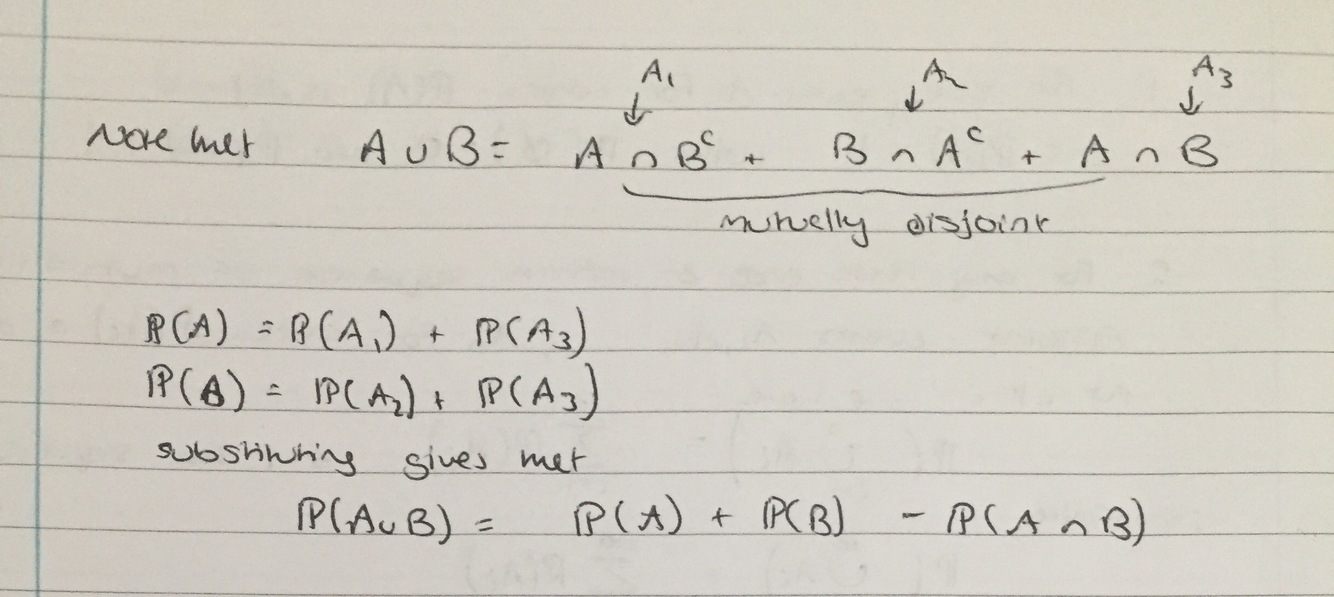 A₁ A₂ A₃
Note that A ∪ B = A ∩ Bᶜ + B ∩ Aᶜ + A ∩ B
mutually disjoint
ℙ(A) = ℙ(A₁) + ℙ(A₃)
ℙ(B) = ℙ(A₂) + ℙ(A₃)
substituting gives that
ℙ(A∪B) = ℙ(A) + ℙ(B) - ℙ(A ∩ B)